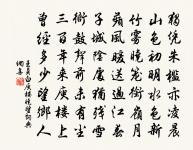 獨凭朱檻立凌晨
山色初明水色新
竹霧曉籠銜嶺月
蘋風暖送過江春
子城陰處猶殘雪
衙鼓聲前未有塵
三百年來庾樓上
曾經多少望鄉人
庾樓曉望詞典
網